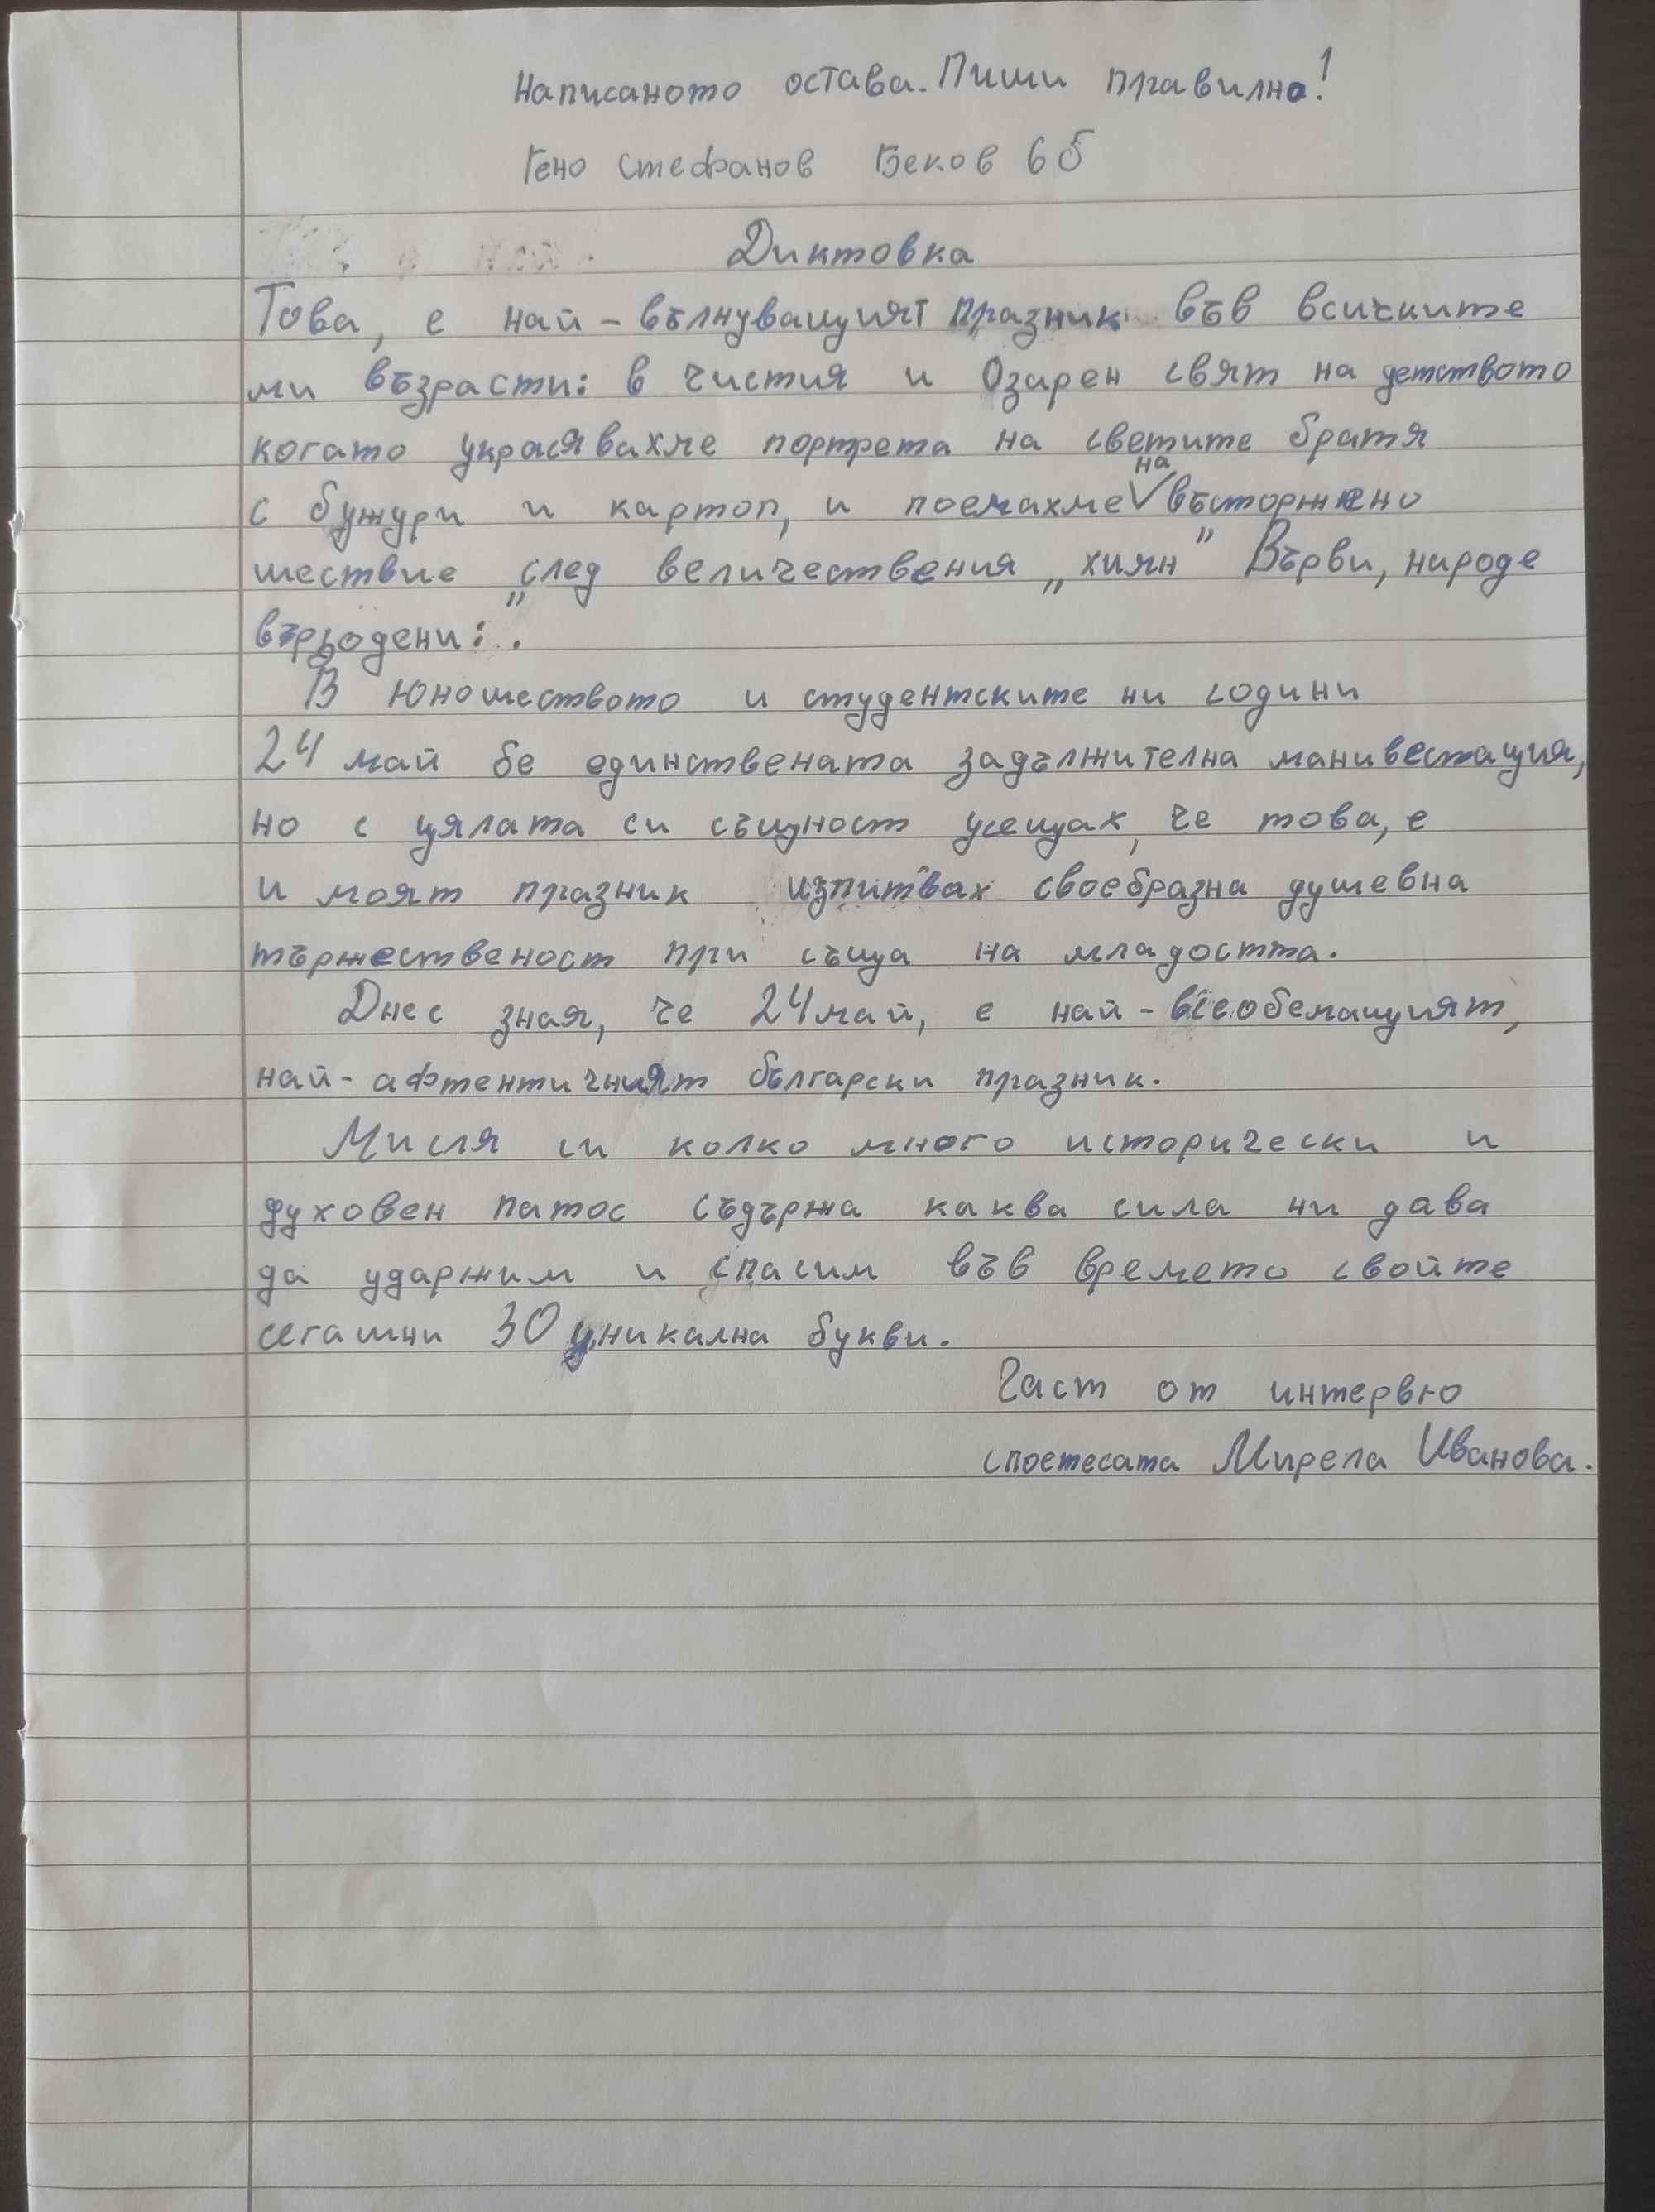 Написаното остава. Пиши правилно!
Гено Стефанов Беков 6б
Диктовка
Това, е най-вълнуващият празник във всичките
ми възрасти: в чистия и Озарен свят на детството
когато украсявахме портрета на светите братя
с бужури и картоп, и поемахме на въсторжено
шествие „след величествения „химн" Върви, народе
въръодени: .
В юношеството и студентските ни години
24 май бе единствената задължителна манивестация,
но с цялата си същност усещах, че това, е
и моят празник изпитвах своебразна душевна
тържественост при съща на младостта.
Днес зная, че 24 май, е най-всеобемащият,
най-афтентичният български празник.
Мисля си колко много исторически и
духовен патос съдържа каква сила ни дава
да ударжим и спасим във времето свойте
сегашни 30 уникална букви.
Част от интервю
споетесата Мирела Иванова.